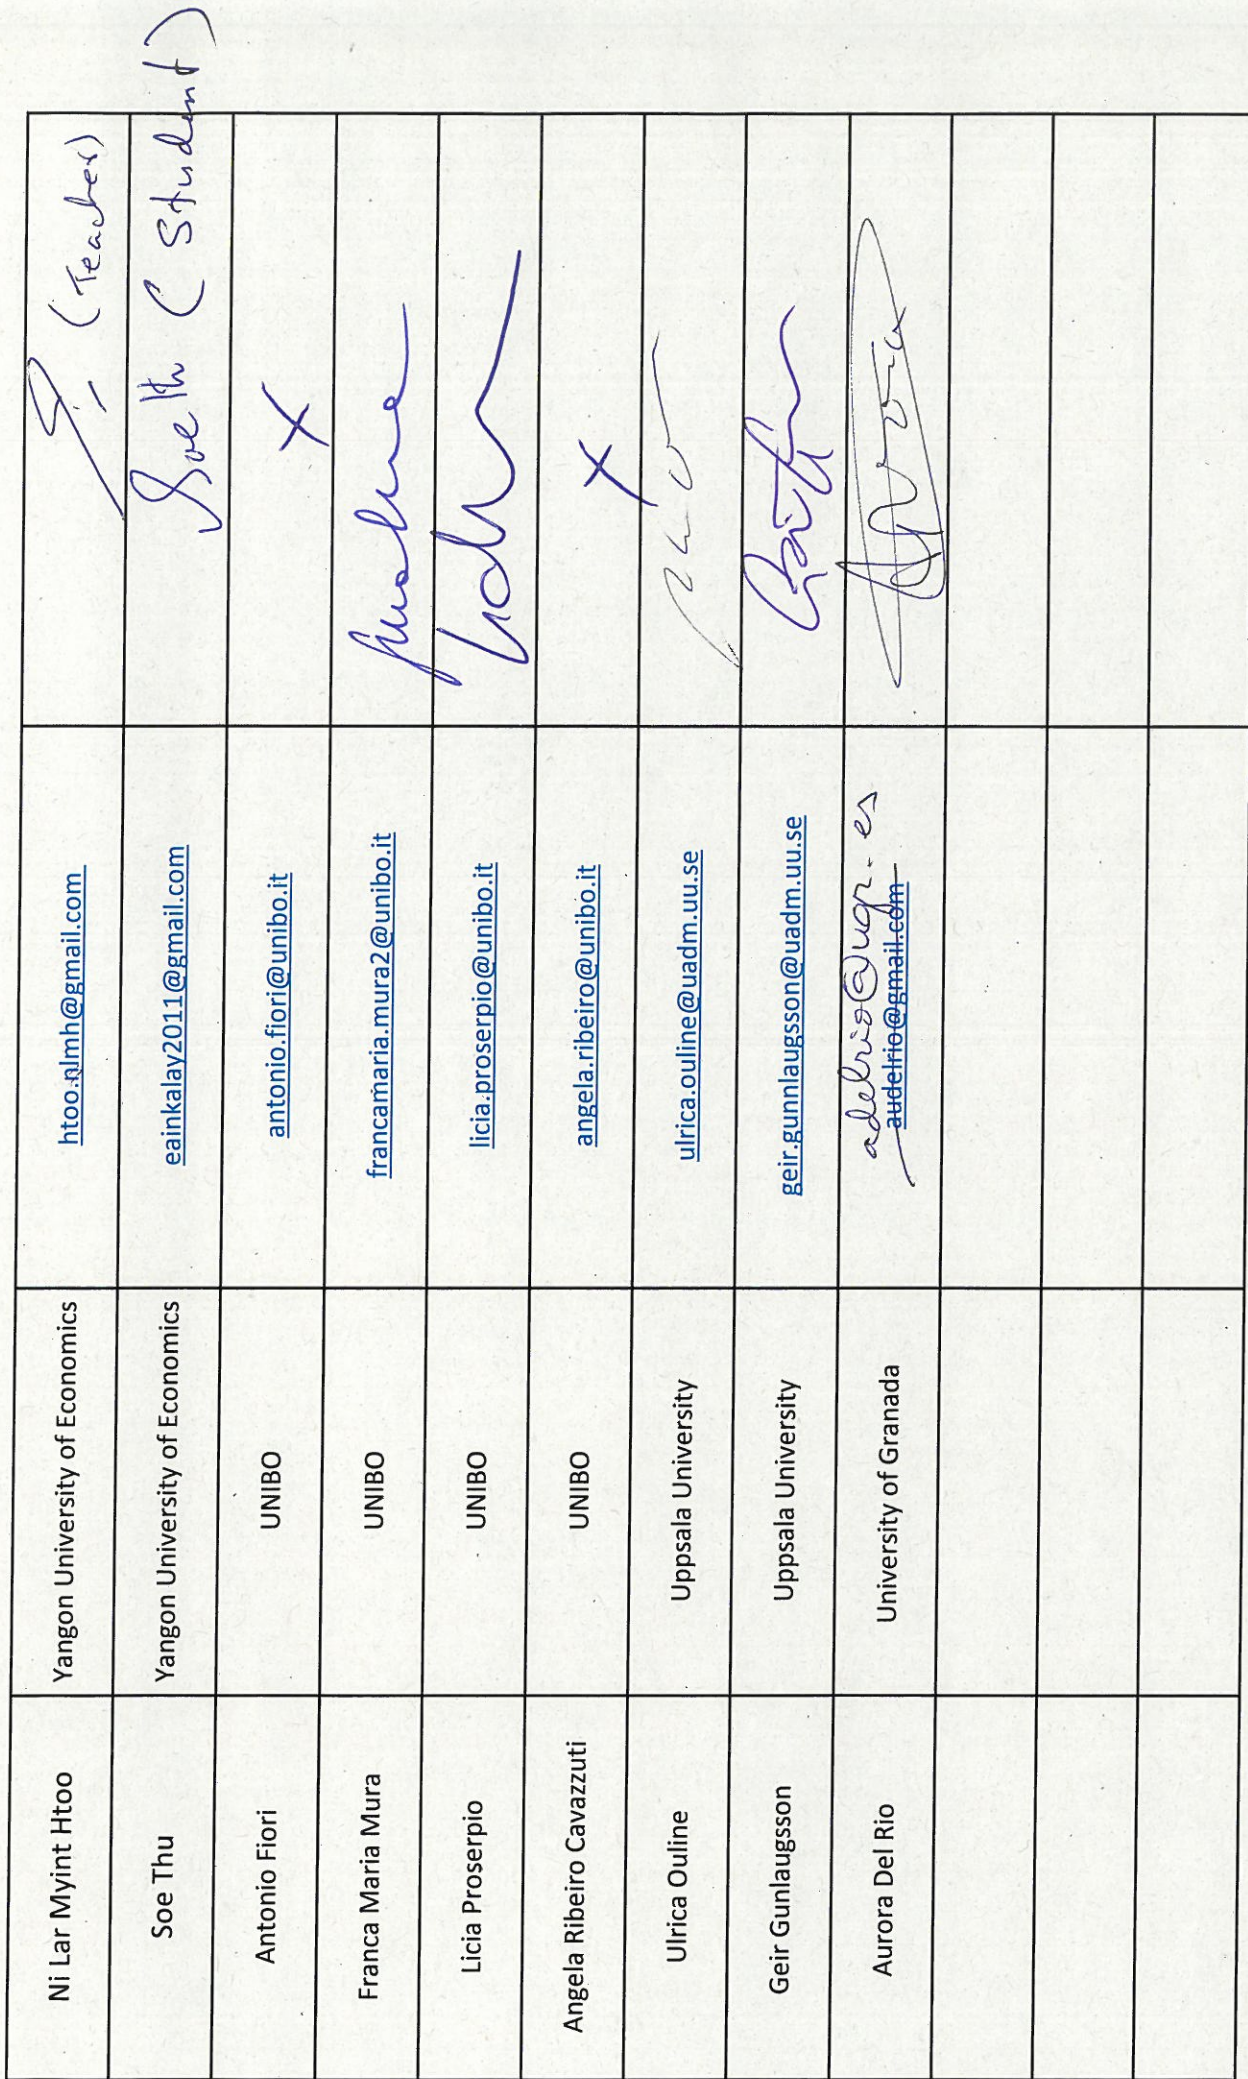 Ni Lar Myint Htoo Yangon University of Economics htoo.nlmh@gmail.com (Teacher)
Soe Thu Yangon University of Economics eainkalay2011@gmail.com (Student)
Antonio Fiori UNIBO antonio.fiori@unibo.it X
Franca Maria Mura UNIBO francamaria.mura2@unibo.it
Licia Proserpio UNIBO licia.proserpio@unibo.it
Angela Ribeiro Cavazzuti UNIBO angela.ribeiro@unibo.it X
Ulrica Ouline Uppsala University ulrica.ouline@uadm.uu.se
Geir Gunlaugsson Uppsala University geir.gunnlaugsson@uadm.uu.se
adelrio@ugr.es
Aurora Del Rio University of Granada audelrio@gmail.com Aurora